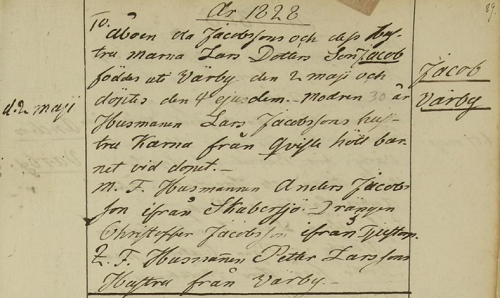 År 1828
89.
10. Åboen Ola Jacobssons och dess hus-
tru Marna Lars Dotters Son Jacob
föddes uti Värby den 2 maji och
döptes den 4 ejusdem. Modren 30 år
Jacob
Värby
d. 2 maji
Husmann Lars Jacobssons hus-
tru Karna från Qvistle höll bar-
net vid dopet. -
M. F. Husmannen Anders Jacobs
son ifrån Skabersjö - Drängen
Christoffer Jacobsson ifrån
Q. F. Husmanen Petter Larssons
Hustru från Värby. -